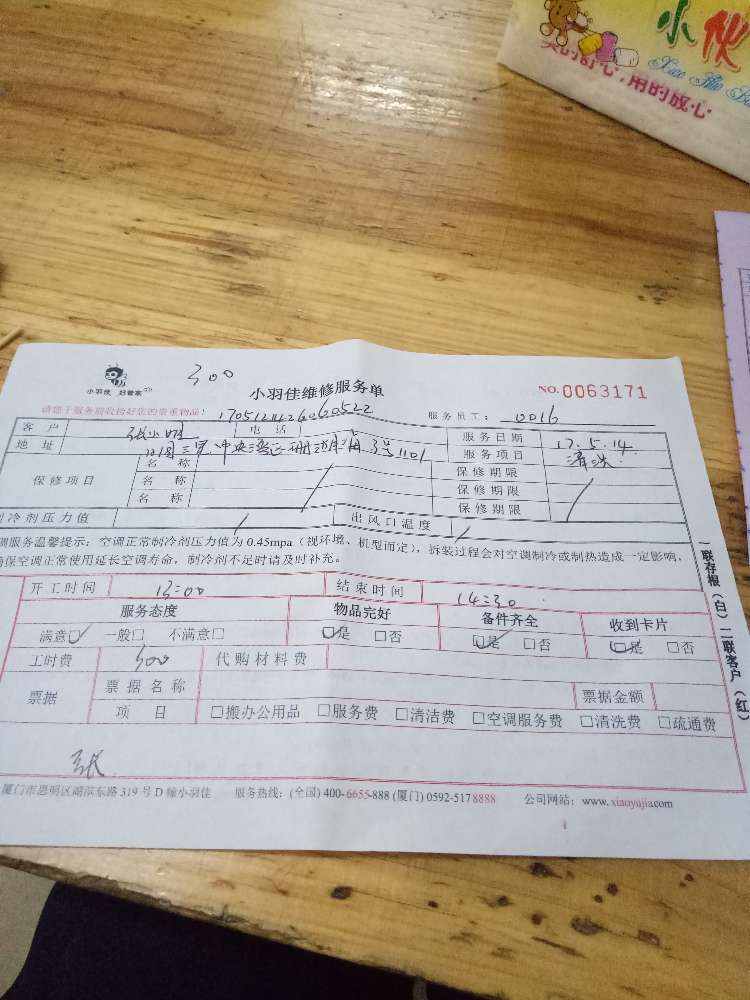 小伙
用的放心
300
小羽佳 好管家
小羽佳维修服务单
NO.0063171
请您于服务前收拾好您的贵重物品！
服务员工： 0016
客户 电话 服务日期 17.5.14
地址 3号1101 服务项目 清洗
保修项目 名称 保修期限
名称 保修期限
名称 保修期限
制冷剂压力值 出风口温度
调服务温馨提示：空调正常制冷剂压力值为 0.45mpa（视环境、机型而定），拆装过程会对空调制冷或制热造成一定影响，
确保空调正常使用延长空调寿命，制冷剂不足时请及时补充。
开工时间 13:00 结束时间 14:30
服务态度 物品完好 备件齐全 收到卡片
满意☑ 一般□ 不满意□ ☑是 □否 ☑是 □否 ☑是 □否
工时费 300 代购材料费
票据 票据名称 票据金额
项目 □搬办公用品 □服务费 □清洁费 □空调服务费 □清洗费 □疏通费
一联存根（白）二联客户（红）
张
厦门市思明区湖滨东路 319 号 D 幢小羽佳 服务热线：(全国) 400-6655-888 (厦门) 0592-5178888 公司网站：www.xiaoyujia.com